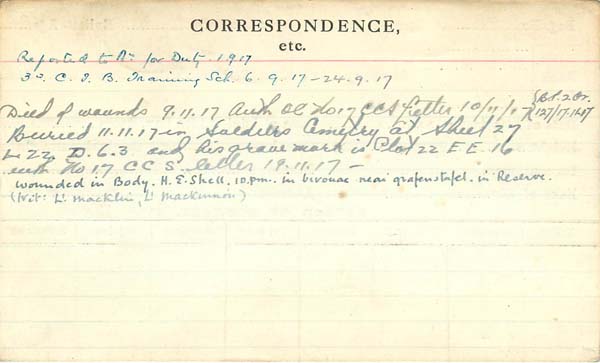 CORRESPONDENCE,
etc.
Reported to Bn for Duty 1917
3rd C. I. B. Training Sch. 6.9.17-24.9.17
Died of wounds 9.11.17 Auth OC No 17 CCS letter 10/11/17
Buried 11.11.17 in Soldiers Cemetery at Sheet 27
L 22. D. 6.3 and his grave mark is Plot 22 E E 16
auth No 17 C C S letter 19.11.17 -
wounded in Body. H.E. Shell. 10.pm. in bivouac near grafenstafel. in Reserve.
(Wit: Lt Macklin, Lt Mackinnon)